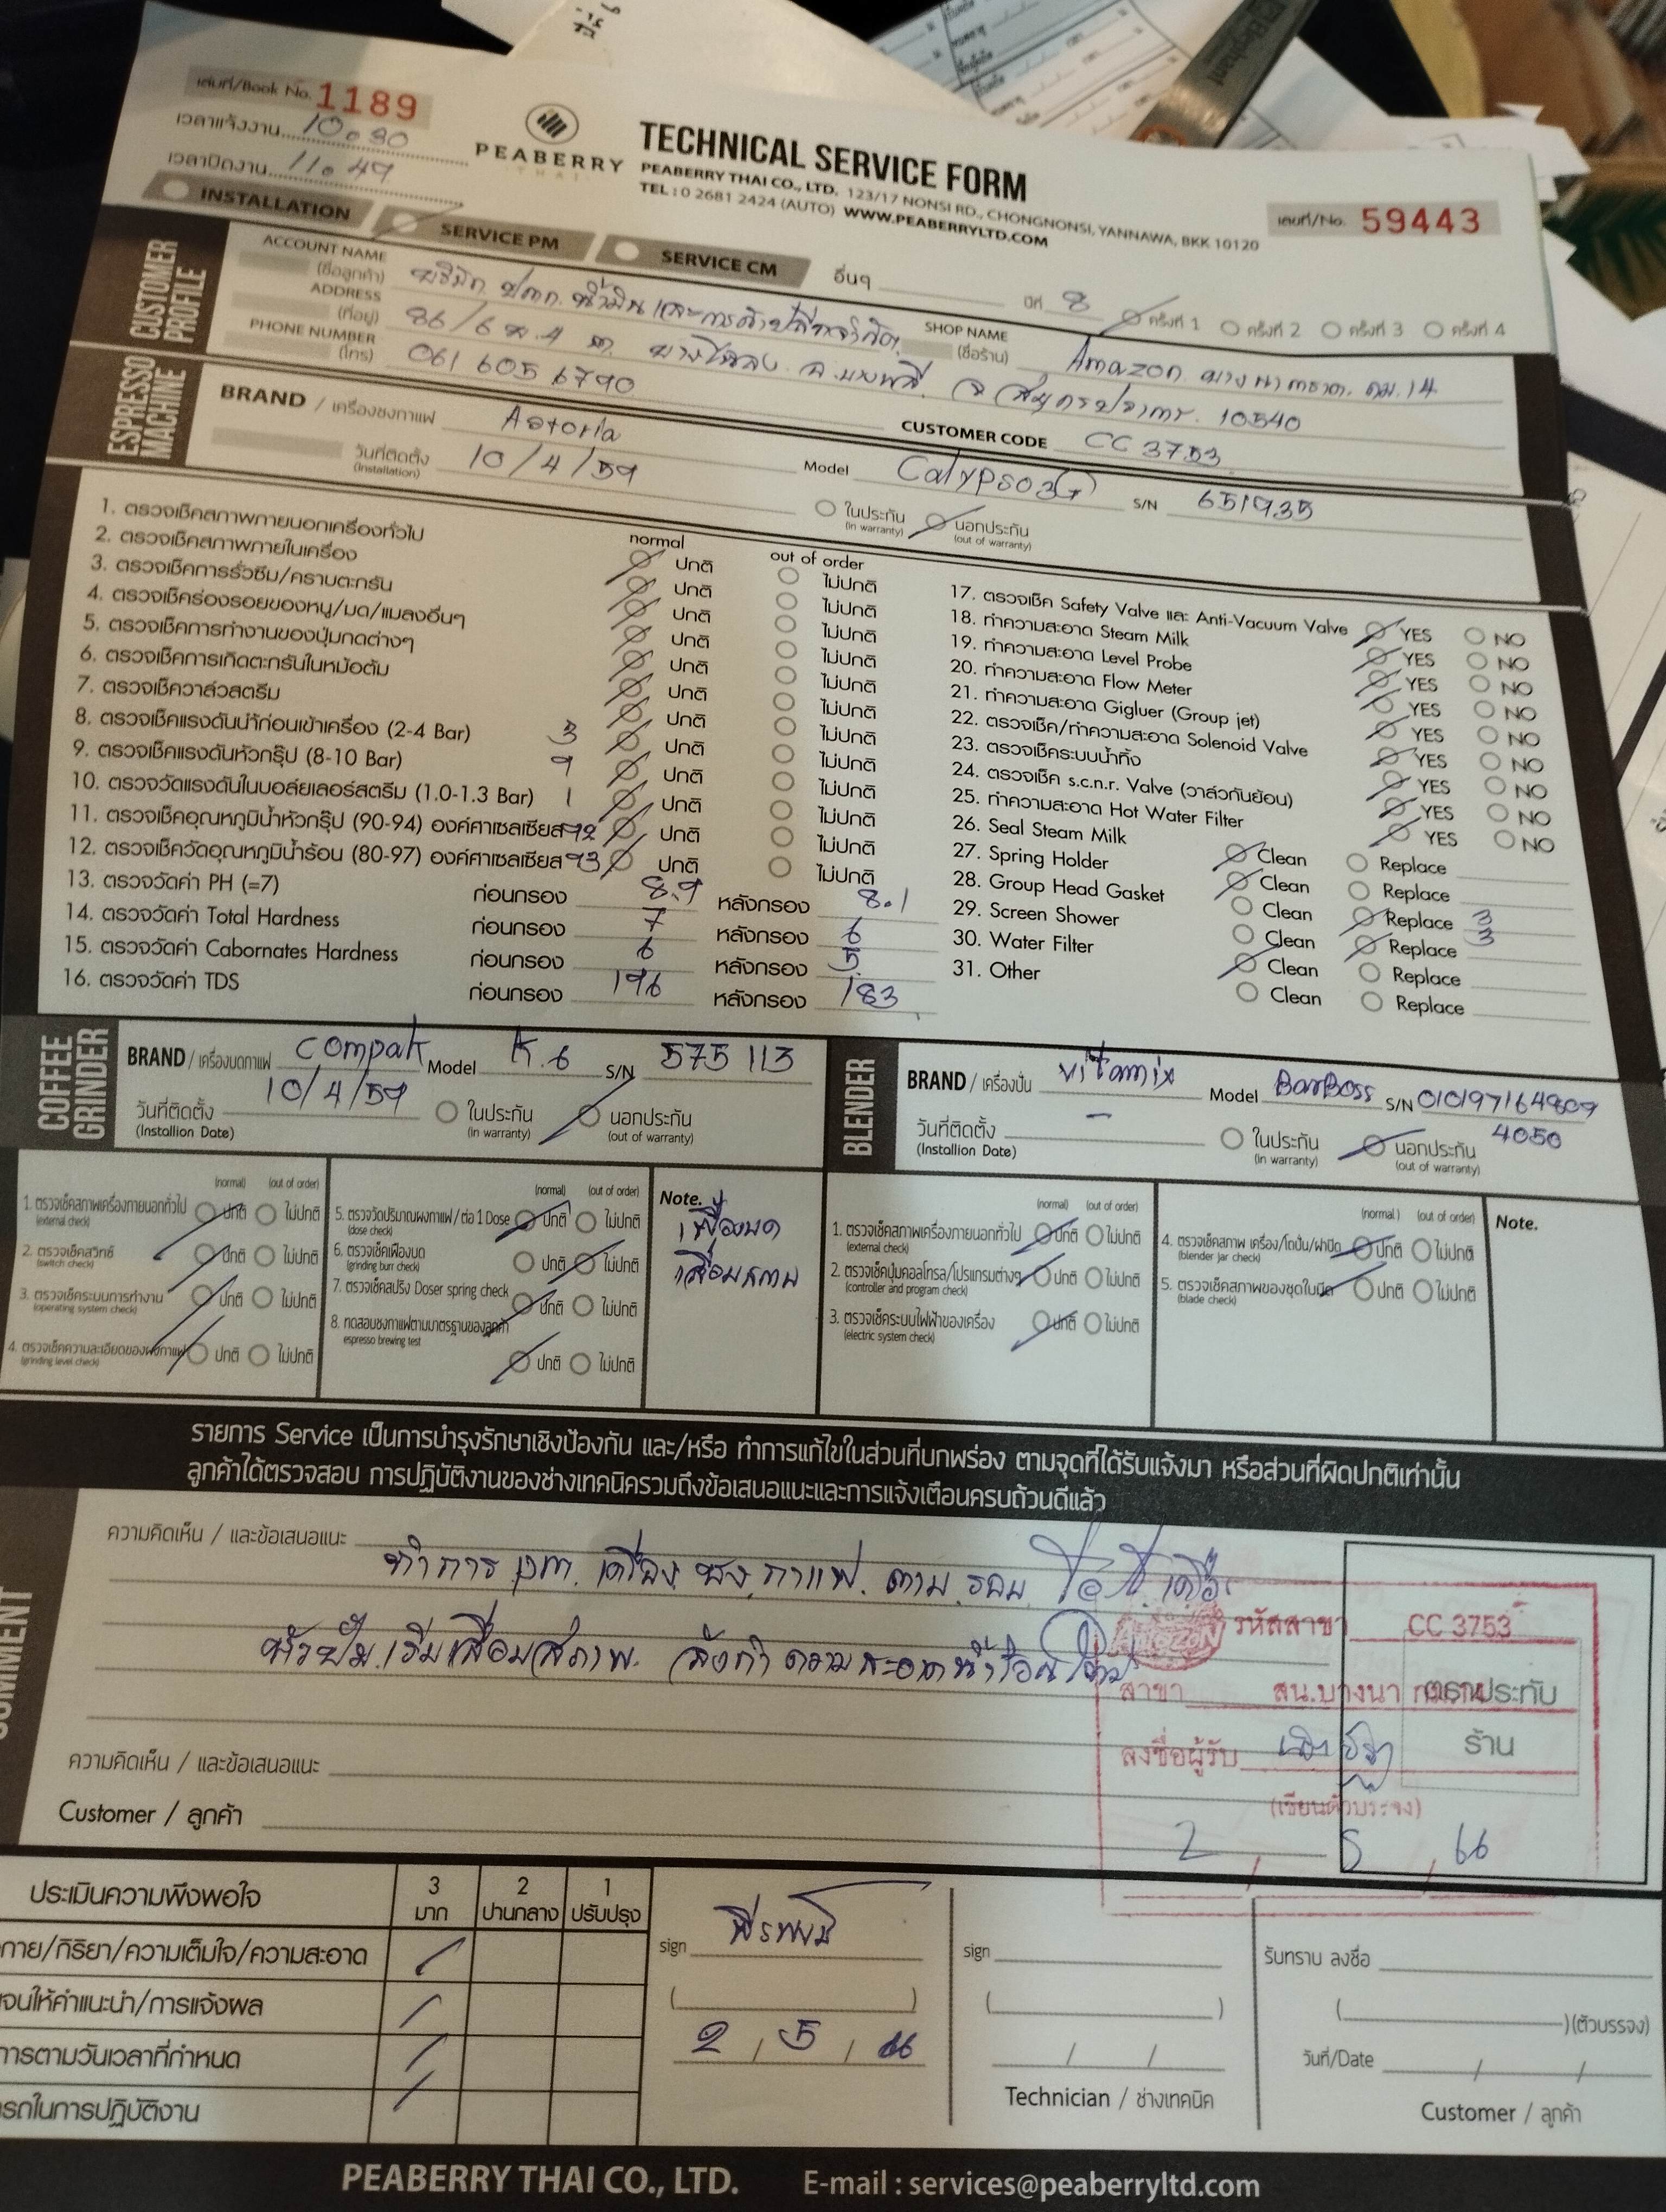 เล่มที่/Book No. 1189
เวลาแจ้งงาน 10.30
เวลาปิดงาน 11.49
PEABERRY
THAI
TECHNICAL SERVICE FORM
PEABERRY THAI CO., LTD. 123/17 NONSI RD., CHONGNONSI, YANNAWA, BKK 10120
TEL : 0 2681 2424 (AUTO) WWW.PEABERRYLTD.COM
เลขที่/No. 59443
INSTALLATION
SERVICE PM
SERVICE CM
อื่นๆ
ปีที่ 8 ครั้งที่ 1 ครั้งที่ 2 ครั้งที่ 3 ครั้งที่ 4
CUSTOMER PROFILE
ACCOUNT NAME (ชื่อลูกค้า) บริษัท ปตท. น้ำมันและการค้าปลีกจำกัด
SHOP NAME (ชื่อร้าน) Amazon บางนาตราด กม.14
ADDRESS (ที่อยู่) 86/6 ม.4 ต. บางโฉลง อ.บางพลี จ.สมุทรปราการ 10540
PHONE NUMBER (โทร) 061 605 6790
CUSTOMER CODE CC 3753
ESPRESSO MACHINE
BRAND / เครื่องชงกาแฟ Astoria
Model Calypso 3G S/N 651935
วันที่ติดตั้ง (Installation) 10/4/59
ในประกัน (in warranty) นอกประกัน (out of warranty)
normal out of order
1. ตรวจเช็คสภาพภายนอกเครื่องทั่วไป ปกติ ไม่ปกติ
2. ตรวจเช็คสภาพภายในเครื่อง ปกติ ไม่ปกติ
3. ตรวจเช็คการรั่วซึม/คราบตะกรัน ปกติ ไม่ปกติ
4. ตรวจเช็คร่องรอยของหนู/มด/แมลงอื่นๆ ปกติ ไม่ปกติ
5. ตรวจเช็คการทำงานของปุ่มกดต่างๆ ปกติ ไม่ปกติ
6. ตรวจเช็คการเกิดตะกรันในหม้อต้ม ปกติ ไม่ปกติ
7. ตรวจเช็ควาล์วสตรีม ปกติ ไม่ปกติ
8. ตรวจเช็คแรงดันน้ำก่อนเข้าเครื่อง (2-4 Bar) 3 ปกติ ไม่ปกติ
9. ตรวจเช็คแรงดันหัวกรุ๊ป (8-10 Bar) 9 ปกติ ไม่ปกติ
10. ตรวจวัดแรงดันในบอล์ยเลอร์สตรีม (1.0-1.3 Bar) 1 ปกติ ไม่ปกติ
11. ตรวจเช็คอุณหภูมิน้ำหัวกรุ๊ป (90-94) องศ์ศาเซลเซียส 92 ปกติ ไม่ปกติ
12. ตรวจเช็ควัดอุณหภูมิน้ำร้อน (80-97) องศ์ศาเซลเซียส 93 ปกติ ไม่ปกติ
13. ตรวจวัดค่า PH (=7) ก่อนกรอง 8.9 หลังกรอง 8.1
14. ตรวจวัดค่า Total Hardness ก่อนกรอง 7 หลังกรอง 6
15. ตรวจวัดค่า Cabornates Hardness ก่อนกรอง 6 หลังกรอง 5
16. ตรวจวัดค่า TDS ก่อนกรอง 196 หลังกรอง 183
17. ตรวจเช็ค Safety Valve และ Anti-Vacuum Valve YES NO
18. ทำความสะอาด Steam Milk YES NO
19. ทำความสะอาด Level Probe YES NO
20. ทำความสะอาด Flow Meter YES NO
21. ทำความสะอาด Gigluer (Group jet) YES NO
22. ตรวจเช็ค/ทำความสะอาด Solenoid Valve YES NO
23. ตรวจเช็คระบบน้ำทิ้ง YES NO
24. ตรวจเช็ค s.c.n.r. Valve (วาล์วกันย้อน) YES NO
25. ทำความสะอาด Hot Water Filter YES NO
26. Seal Steam Milk Clean Replace
27. Spring Holder Clean Replace
28. Group Head Gasket Clean Replace 3
29. Screen Shower Clean Replace 3
30. Water Filter Clean Replace
31. Other Clean Replace
COFFEE GRINDER
BRAND / เครื่องบดกาแฟ Compak Model K.6 S/N 575 113
วันที่ติดตั้ง (Installion Date) 10/4/59 ในประกัน (in warranty) นอกประกัน (out of warranty)
BLENDER
BRAND / เครื่องปั่น vitamix Model BarBoss S/N 010197164809
4050
วันที่ติดตั้ง (Installion Date) - ในประกัน (in warranty) นอกประกัน (out of warranty)
(normal) (out of order)
1. ตรวจเช็คสภาพเครื่องภายนอกทั่วไป (external check) ปกติ ไม่ปกติ
2. ตรวจเช็คสวิทซ์ (switch check) ปกติ ไม่ปกติ
3. ตรวจเช็คระบบการทำงาน (operating system check) ปกติ ไม่ปกติ
4. ตรวจเช็คความละเอียดของผงกาแฟ (grinding level check) ปกติ ไม่ปกติ
(normal) (out of order)
5. ตรวจวัดปริมาณผงกาแฟ/ต่อ 1 Dose (dose check) ปกติ ไม่ปกติ
6. ตรวจเช็คเฟืองบด (grinding burr check) ปกติ ไม่ปกติ
7. ตรวจเช็คสปริง Doser spring check ปกติ ไม่ปกติ
8. ทดสอบชงกาแฟตามมาตรฐานของลูกค้า espresso brewing test ปกติ ไม่ปกติ
Note.
เฟืองบด
เสื่อมสภาพ
(normal) (out of order)
1. ตรวจเช็คสภาพเครื่องภายนอกทั่วไป (external check) ปกติ ไม่ปกติ
2. ตรวจเช็คปุ่มคอลโทรล/โปรแกรมต่างๆ (controller and program check) ปกติ ไม่ปกติ
3. ตรวจเช็คระบบไฟฟ้าของเครื่อง (electric system check) ปกติ ไม่ปกติ
(normal) (out of order)
4. ตรวจเช็คสภาพ เครื่อง/โถปั่น/ฝาปิด (blender jar check) ปกติ ไม่ปกติ
5. ตรวจเช็คสภาพของชุดใบมีด (blade check) ปกติ ไม่ปกติ
Note.
รายการ Service เป็นการบำรุงรักษาเชิงป้องกัน และ/หรือ ทำการแก้ไขในส่วนที่บกพร่อง ตามจุดที่ได้รับแจ้งมา หรือส่วนที่ผิดปกติเท่านั้น
ลูกค้าได้ตรวจสอบ การปฏิบัติงานของช่างเทคนิครวมถึงข้อเสนอแนะและการแจ้งเตือนครบถ้วนดีแล้ว
ความคิดเห็น / และข้อเสนอแนะ
ทำการ pm. เครื่อง ชง กาแฟ. ตาม รอบ
หัวปั๊ม เริ่มเสื่อมสภาพ. ล้างทำความสะอาด
รหัสสาขา CC 3753
สาขา สน.บางนา
ตราประทับ
ร้าน
ลงชื่อผู้รับ
(เขียนตัวบรรจง)
2 / 5 / 66
ความคิดเห็น / และข้อเสนอแนะ
Customer / ลูกค้า
ประเมินความพึงพอใจ 3 มาก 2 ปานกลาง 1 ปรับปรุง
กาย/กิริยา/ความเต็มใจ/ความสะอาด
จนให้คำแนะนำ/การแจ้งผล
การตามวันเวลาที่กำหนด
รถในการปฏิบัติงาน
sign
2 / 5 / 66
sign
Technician / ช่างเทคนิค
รับทราบ ลงชื่อ
(ตัวบรรจง)
วันที่/Date
Customer / ลูกค้า
PEABERRY THAI CO., LTD. E-mail : services@peaberryltd.com